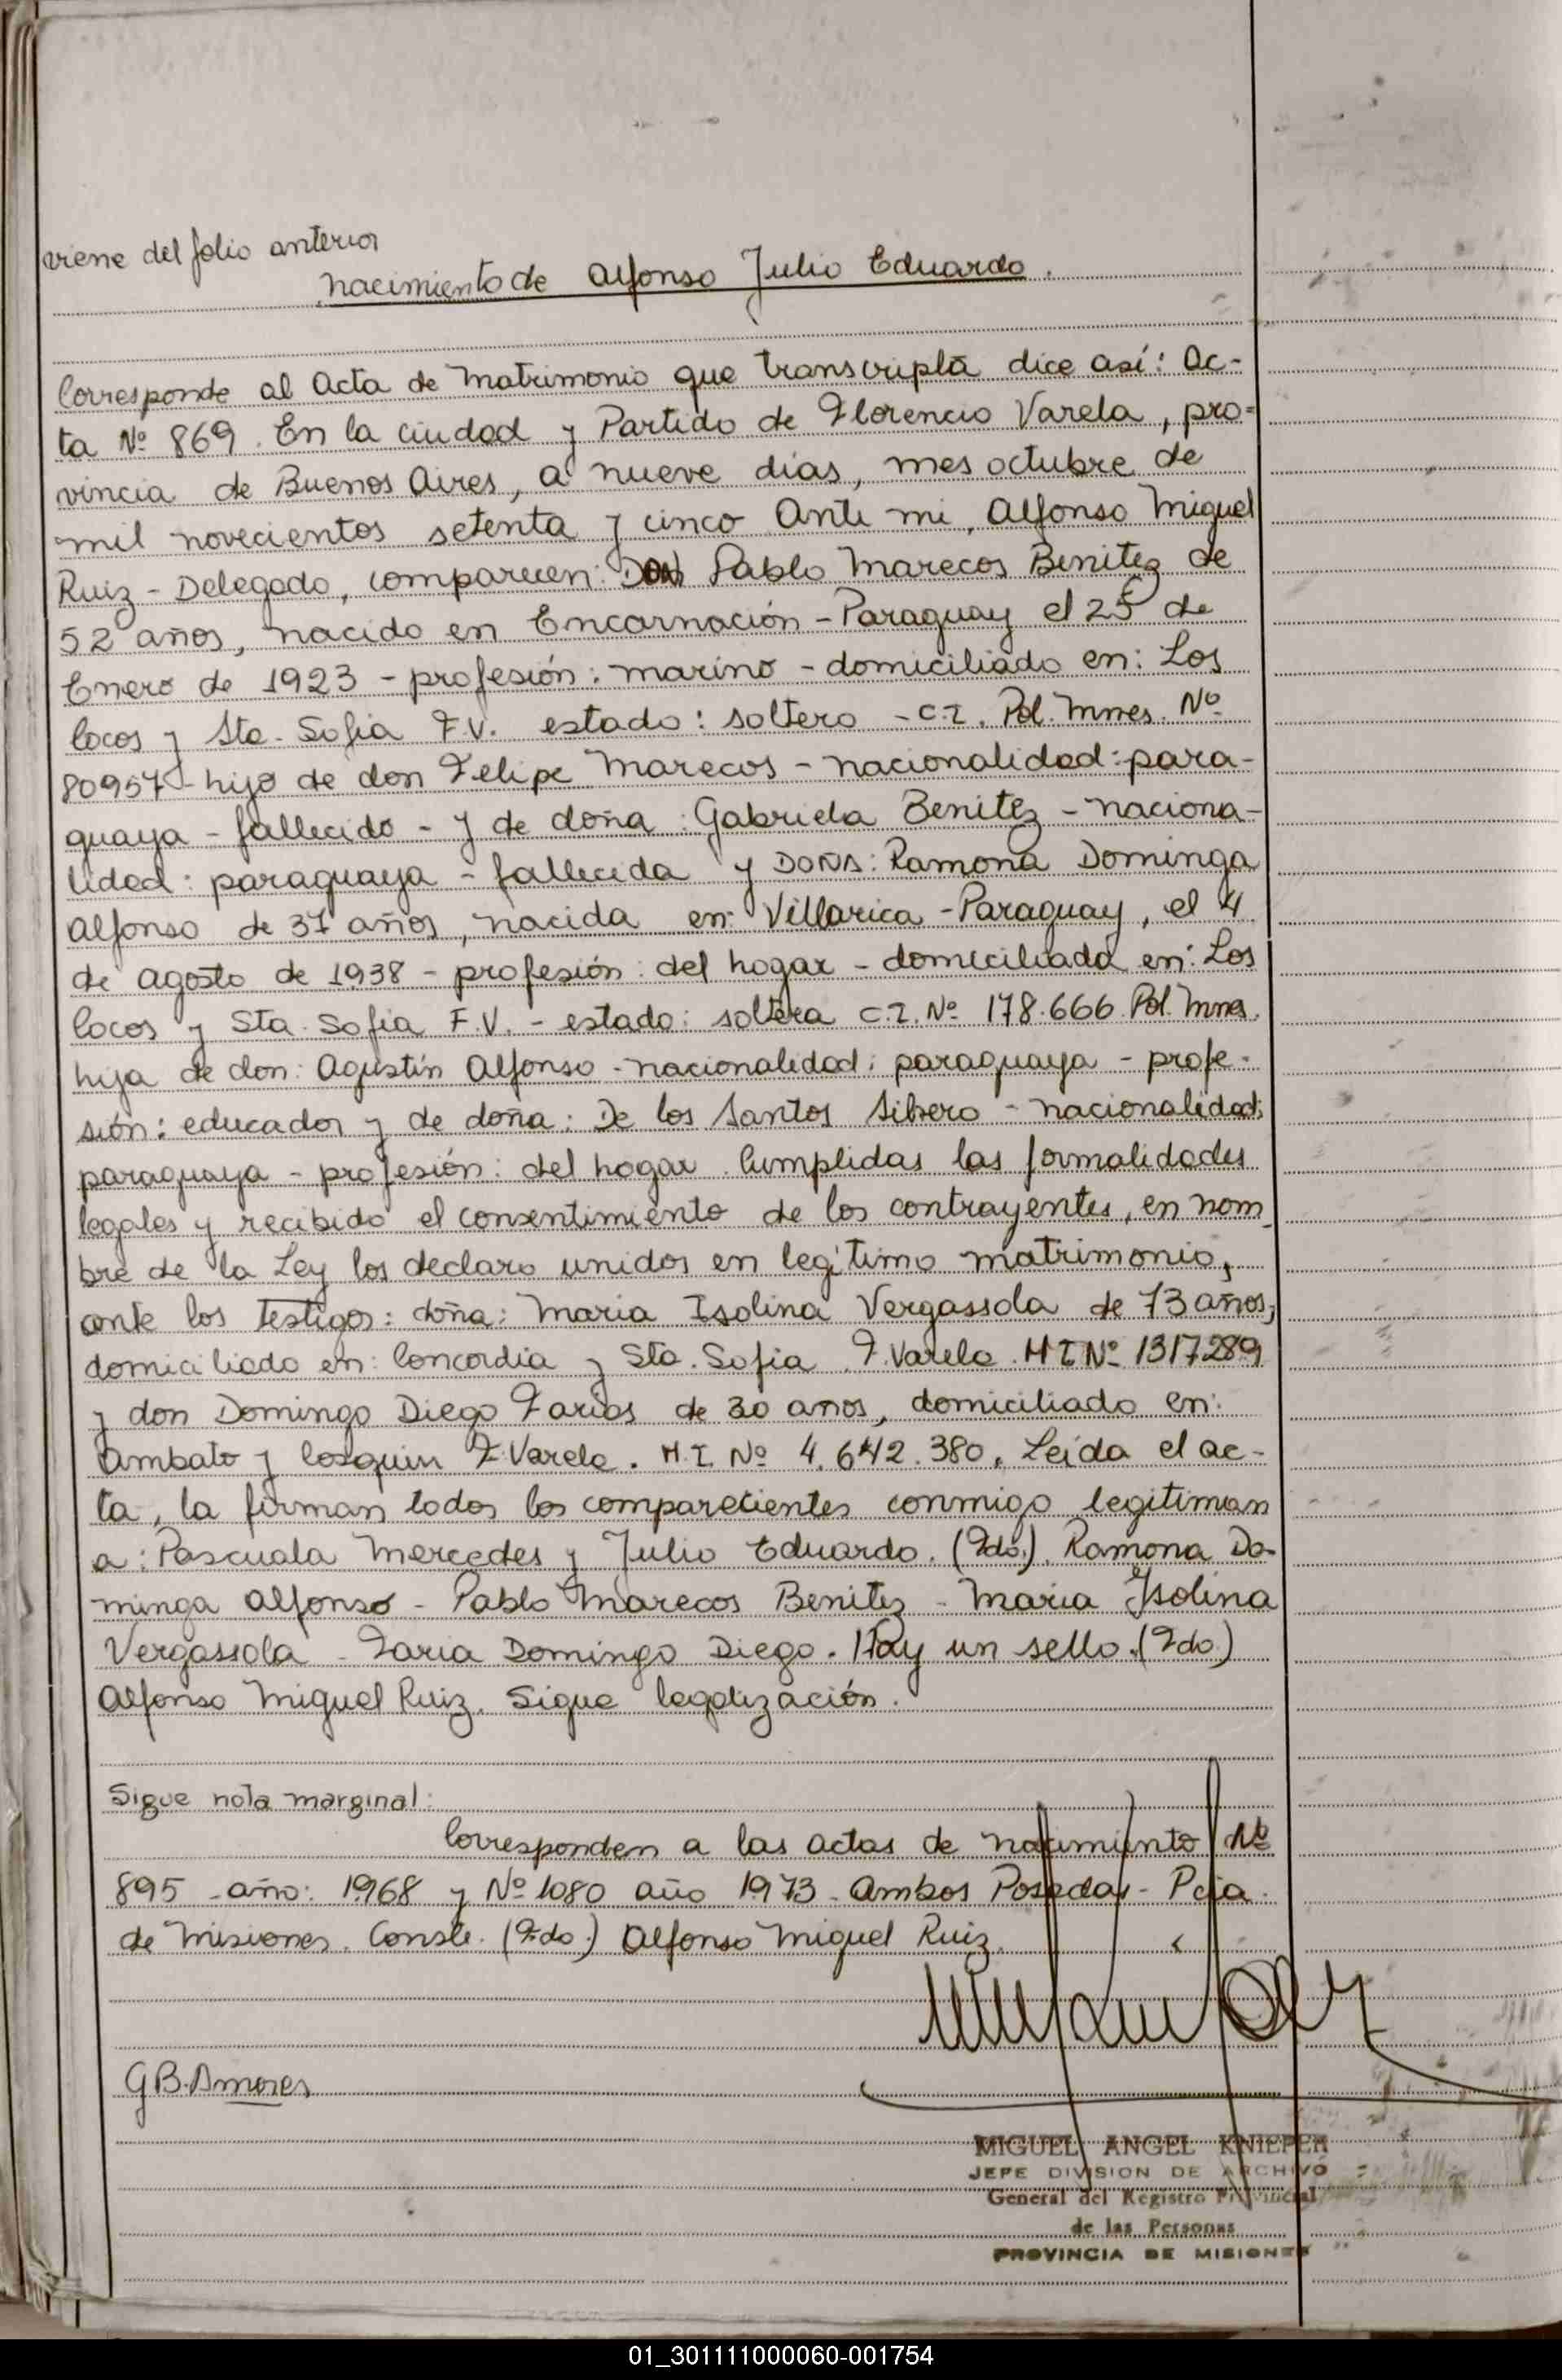 viene del folio anterior
nacimiento de Alfonso Julio Eduardo.
Corresponde al Acta de Matrimonio que transcripta dice así: Ac-
ta Nº 869. En la ciudad y Partido de Florencio Varela, pro=
vincia de Buenos Aires, a nueve días, mes octubre de
mil novecientos setenta y cinco Ante mi, Alfonso Miguel
Ruiz - Delegado, comparecen: DON Pablo Marecos Benitez de
52 años, nacido en Encarnación - Paraguay el 25 de
Enero de 1923 - profesión: marino - domiciliado en: Los
Cocos y Sta. Sofia F.V. estado: soltero - C.I. Pol. Mnes. Nº
80957 - hijo de don Felipe Marecos - nacionalidad: para-
guaya - fallecido - y de doña: Gabriela Benitez - naciona-
lidad: paraguaya - fallecida y DOÑA: Ramona Dominga
Alfonso de 37 años, nacida en: Villarica - Paraguay, el 4
de agosto de 1938 - profesión: del hogar - domiciliada en: Los
Cocos y Sta. Sofia F.V. - estado: soltera C.I. Nº 178.666 Pol. Mnes.
hija de don: Agustín Alfonso - nacionalidad: paraguaya - profe-
sión: educador y de doña: De los Santos Silvero - nacionalidad:
paraguaya - profesión: del hogar. Cumplidas las formalidades
legales y recibido el consentimiento de los contrayentes, en nom
bre de la Ley los declaro unidos en legítimo matrimonio,
ante los Testigos: doña: Maria Isolina Vergassola de 73 años,
domiciliado en: Concordia y Sta. Sofia F. Varela. M I Nº 1317289
y don Domingo Diego Farias de 30 anos, domiciliado en:
Ambato y Cosquin F. Varela. M.I. Nº 4.642.380. Leída el ac-
ta, la firman todos los comparecientes conmigo legitiman
a: Pascuala Mercedes y Julio Eduardo. (Fdo.). Ramona Do-
minga Alfonso - Pablo Marecos Benitez - Maria Isolina
Vergassola - Faria Domingo Diego. Hay un sello. (Fdo.)
Alfonso Miguel Ruiz. Sigue legalización.
Sigue nota marginal:
Corresponden a las actas de nacimiento Nº
895 - año: 1968 y Nº 1080 año 1973 - Ambos Posadas - Pcia.
de Misiones. Conste. (Fdo.) Alfonso Miguel Ruiz.
G.B. Amores
MIGUEL ANGEL KNIEPER
JEFE DIVISION DE ARCHIVO
General del Registro Provincial
de las Personas
PROVINCIA DE MISIONES
01_301111000060-001754